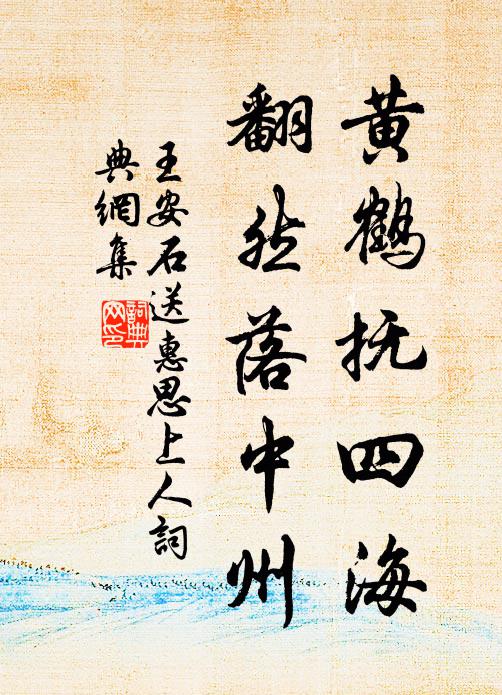 黄鹤抚四海
翻然落中州
王安石送惠思上人詞
典網集
詞典
网印